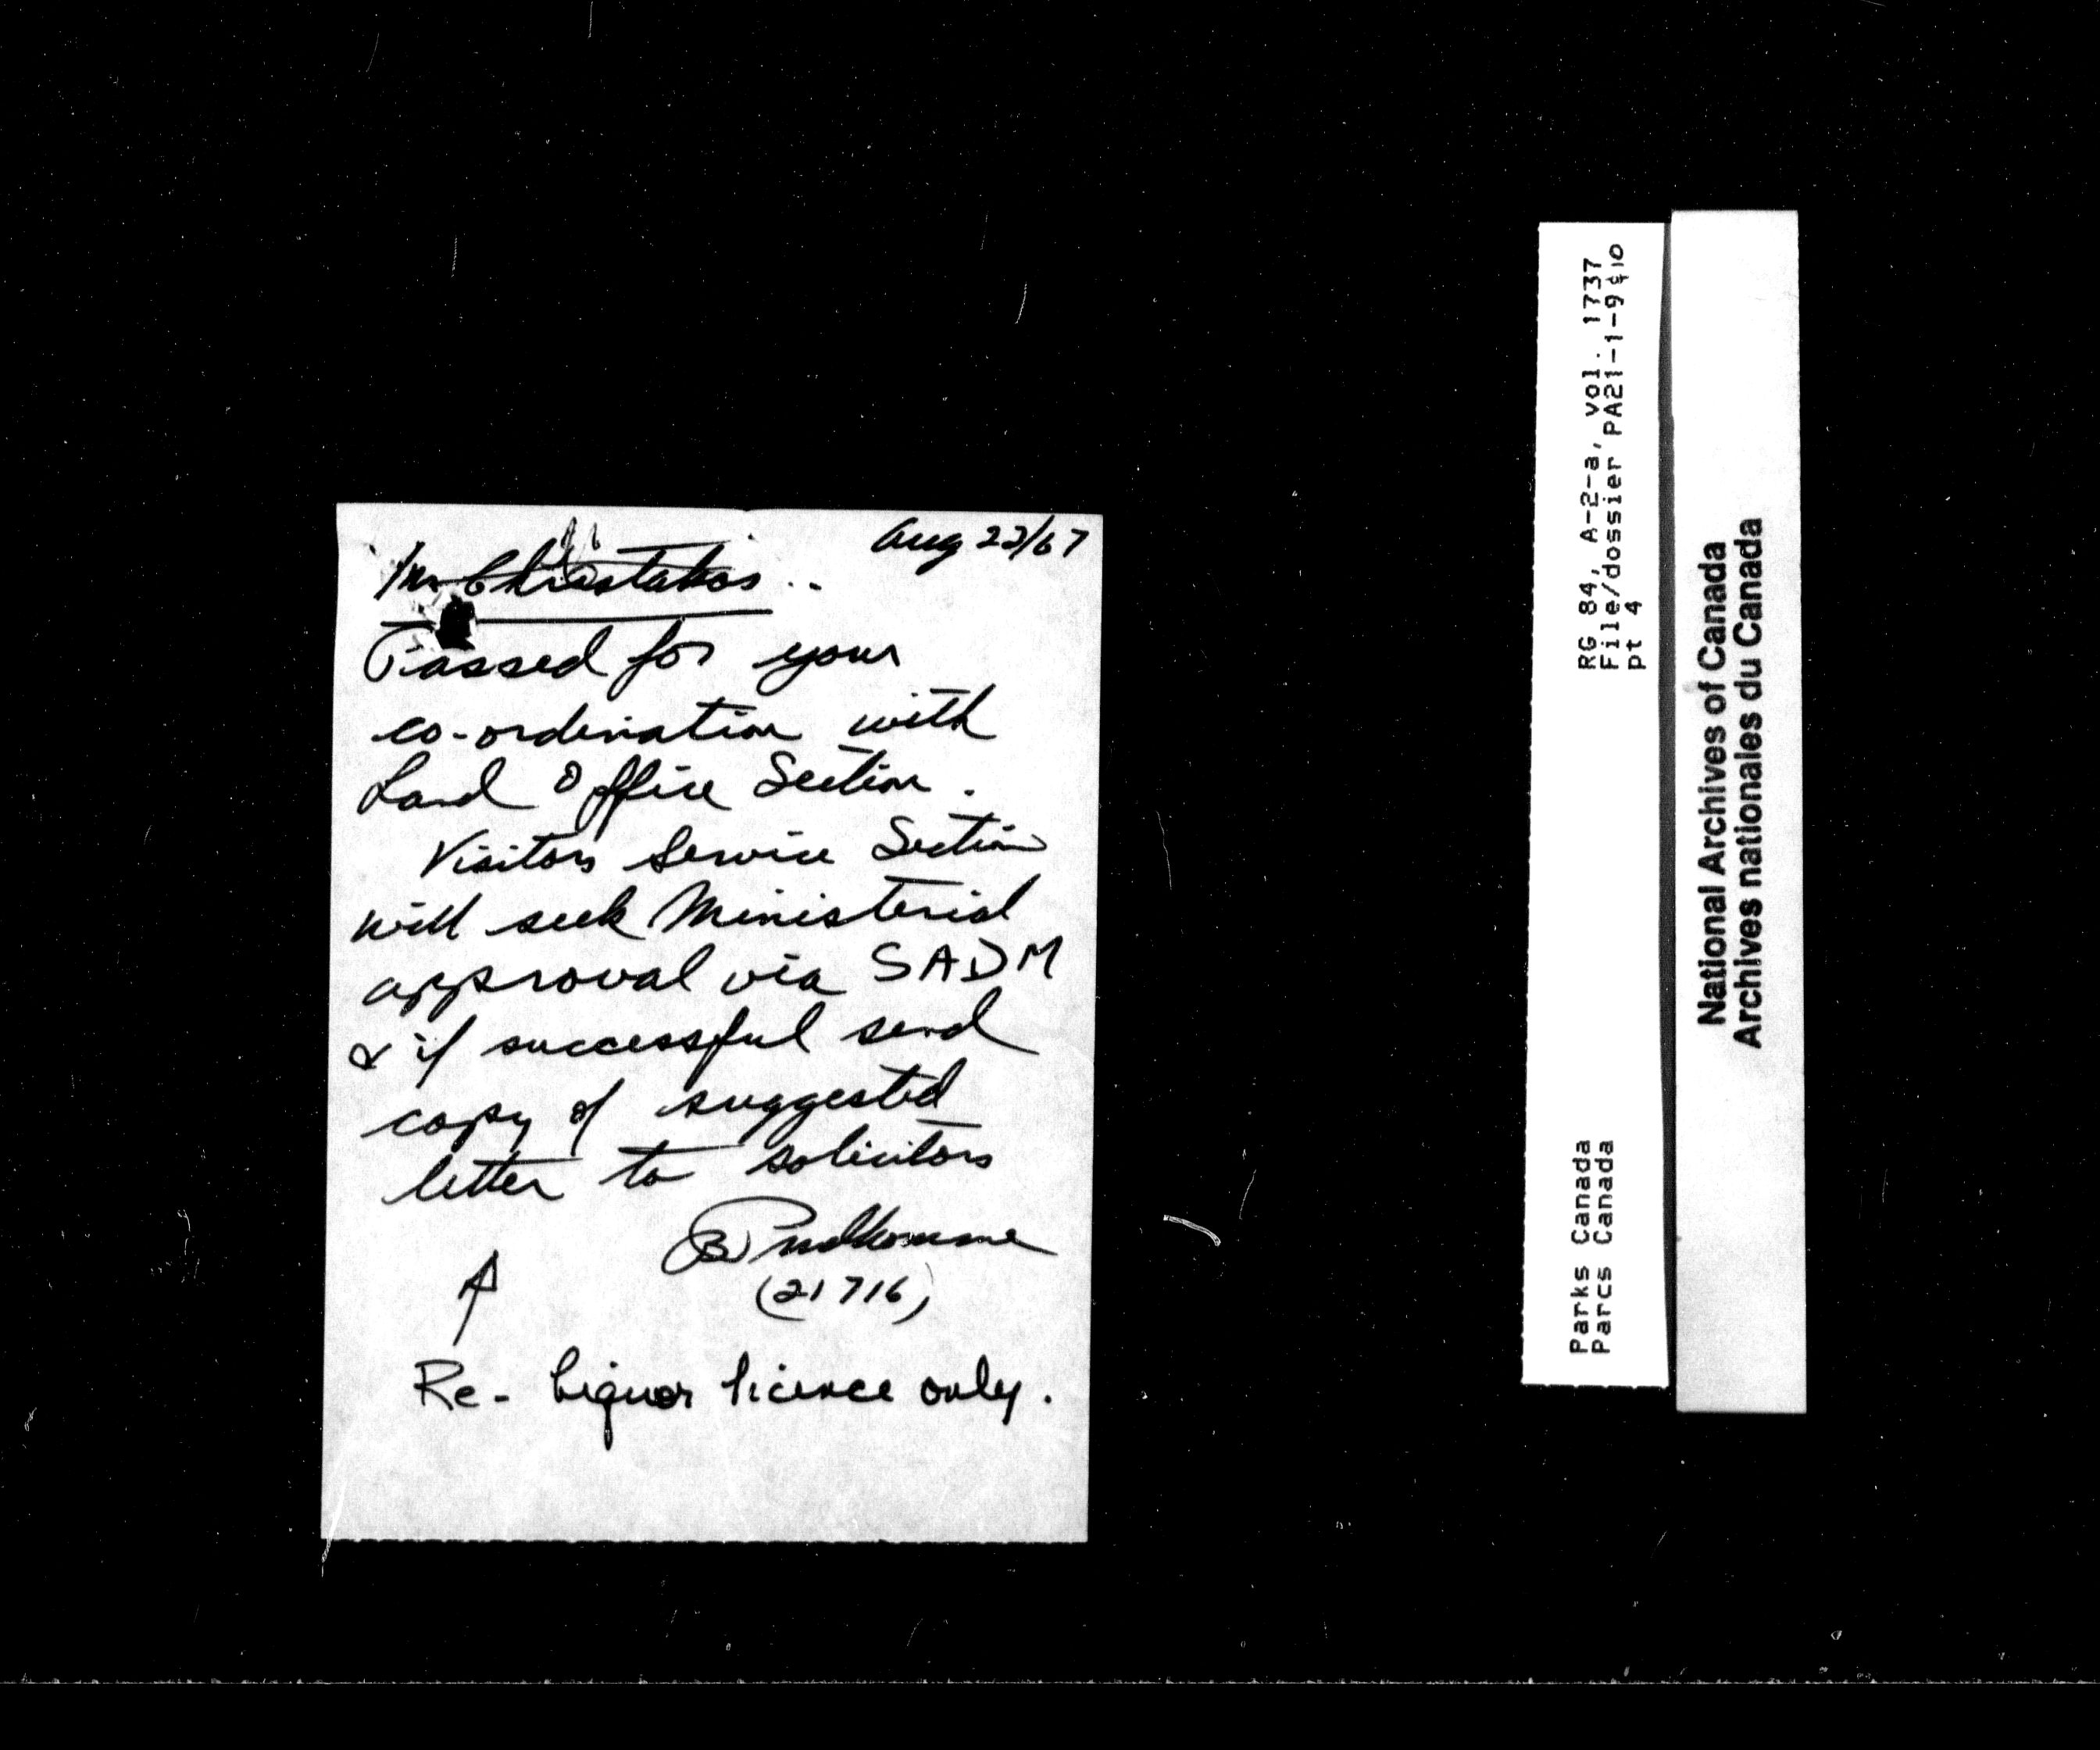 Aug 22/67
Mr Christakos..
Passed for your
co-ordination with
Land Office Section.
Visitors Service Section
will seek Ministerial
approval via SADM
& if successful send
copy of suggested
letter to solicitors
B Prudhomme
(21716)
Re- Liquor licence only.
RG 84, A-2-a, vol. 1737
File/dossier PA21-1-9 & 10
pt 4
Parks Canada
Parcs Canada
National Archives of Canada
Archives nationales du Canada